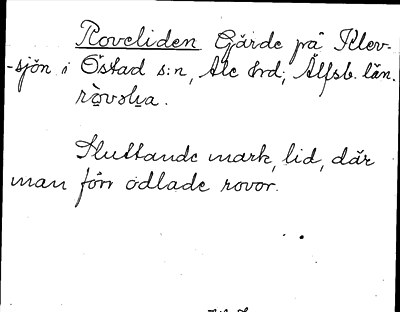 Roveliden Gärde på Klev-
-sjön i Östad s:n, Ale hrd; Älfsb. län.
Sluttande mark, lid, där
man förr odlade rovor.